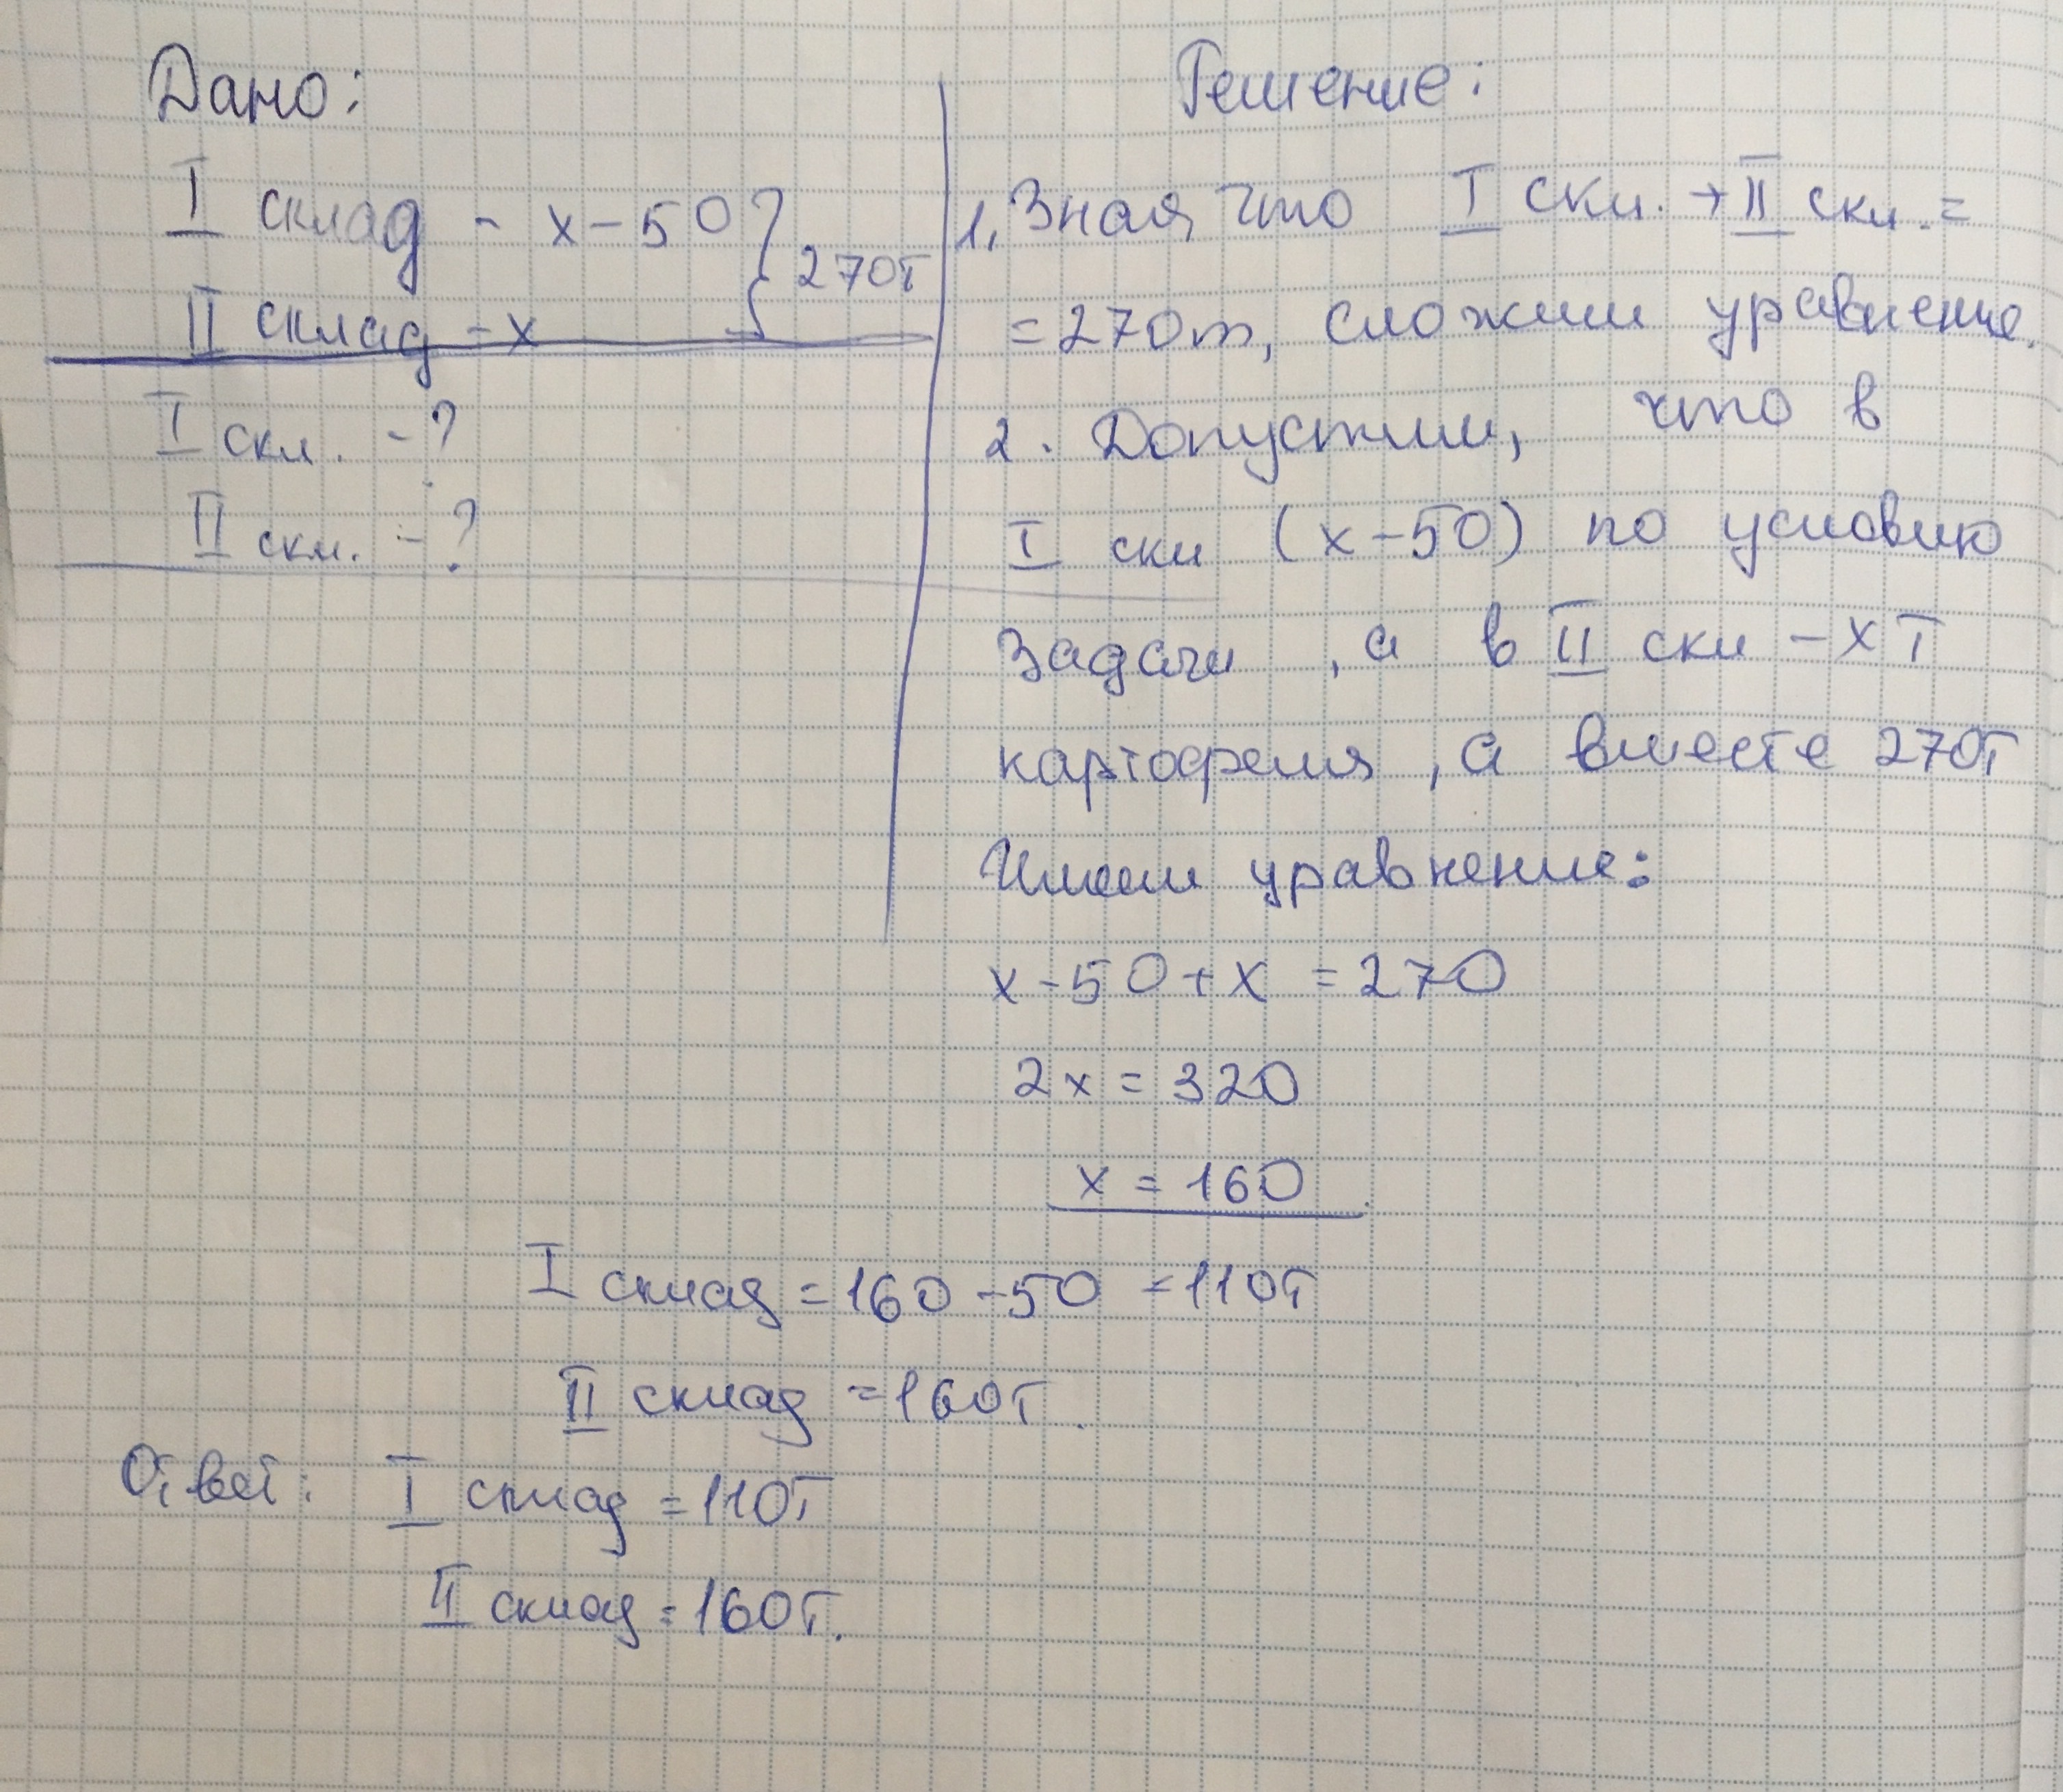 Дано:
I склад - x-50
270т
II склад - x
I скл. - ?
II скл. - ?
Решение:
1. Зная что I скл. + II скл. =
= 270т, сложим уравнение.
2. Допустим, что в
I скл (x-50) по условию
задачи, а в II скл - x т
картофеля, а вместе 270т
Имеем уравнение:
x-50+x = 270
2x = 320
x = 160
I склад = 160 - 50 = 110т
II склад = 160т.
Ответ: I склад = 110т
II склад = 160т.